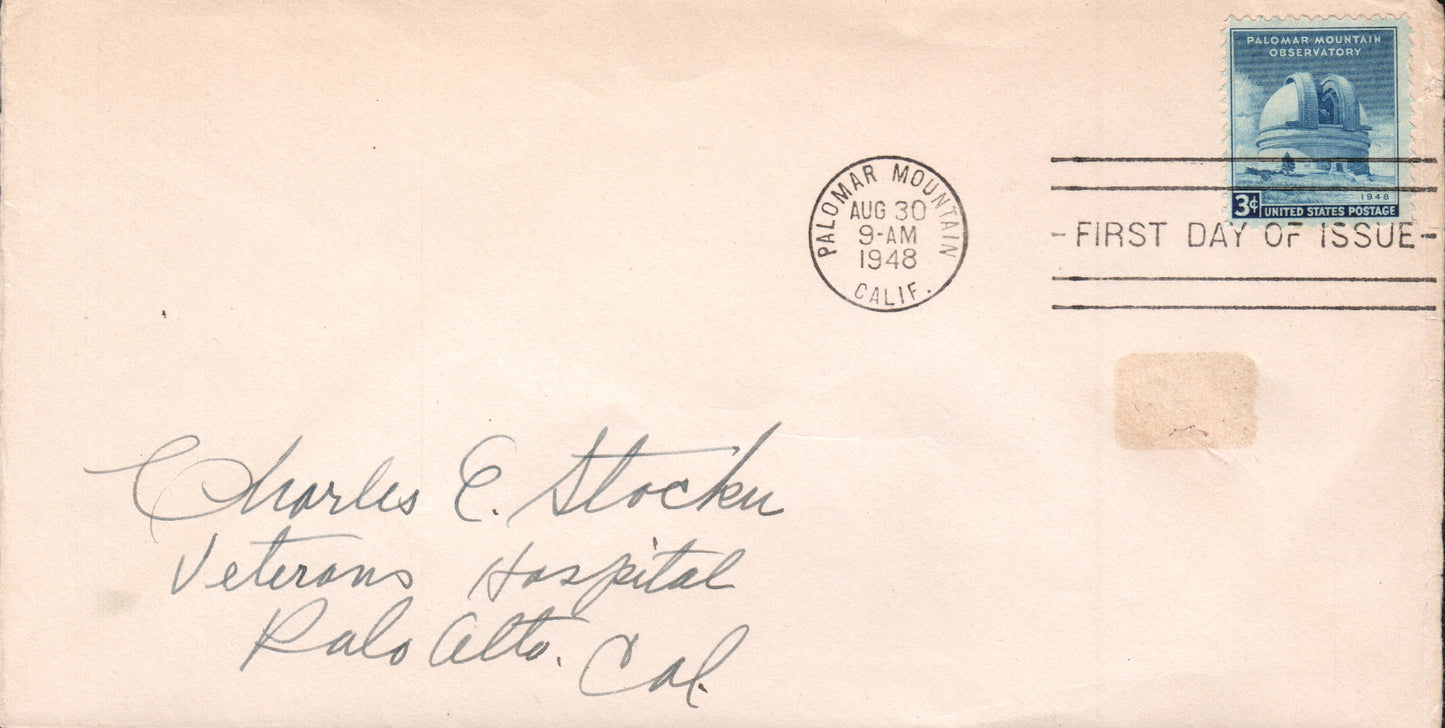 PALOMAR MOUNTAIN
OBSERVATORY
1948
3¢ UNITED STATES POSTAGE
PALOMAR MOUNTAIN
AUG 30
9-AM
1948
CALIF.
- FIRST DAY OF ISSUE -
Charles E.
Veterans Hospital
Palo Alto. Cal.